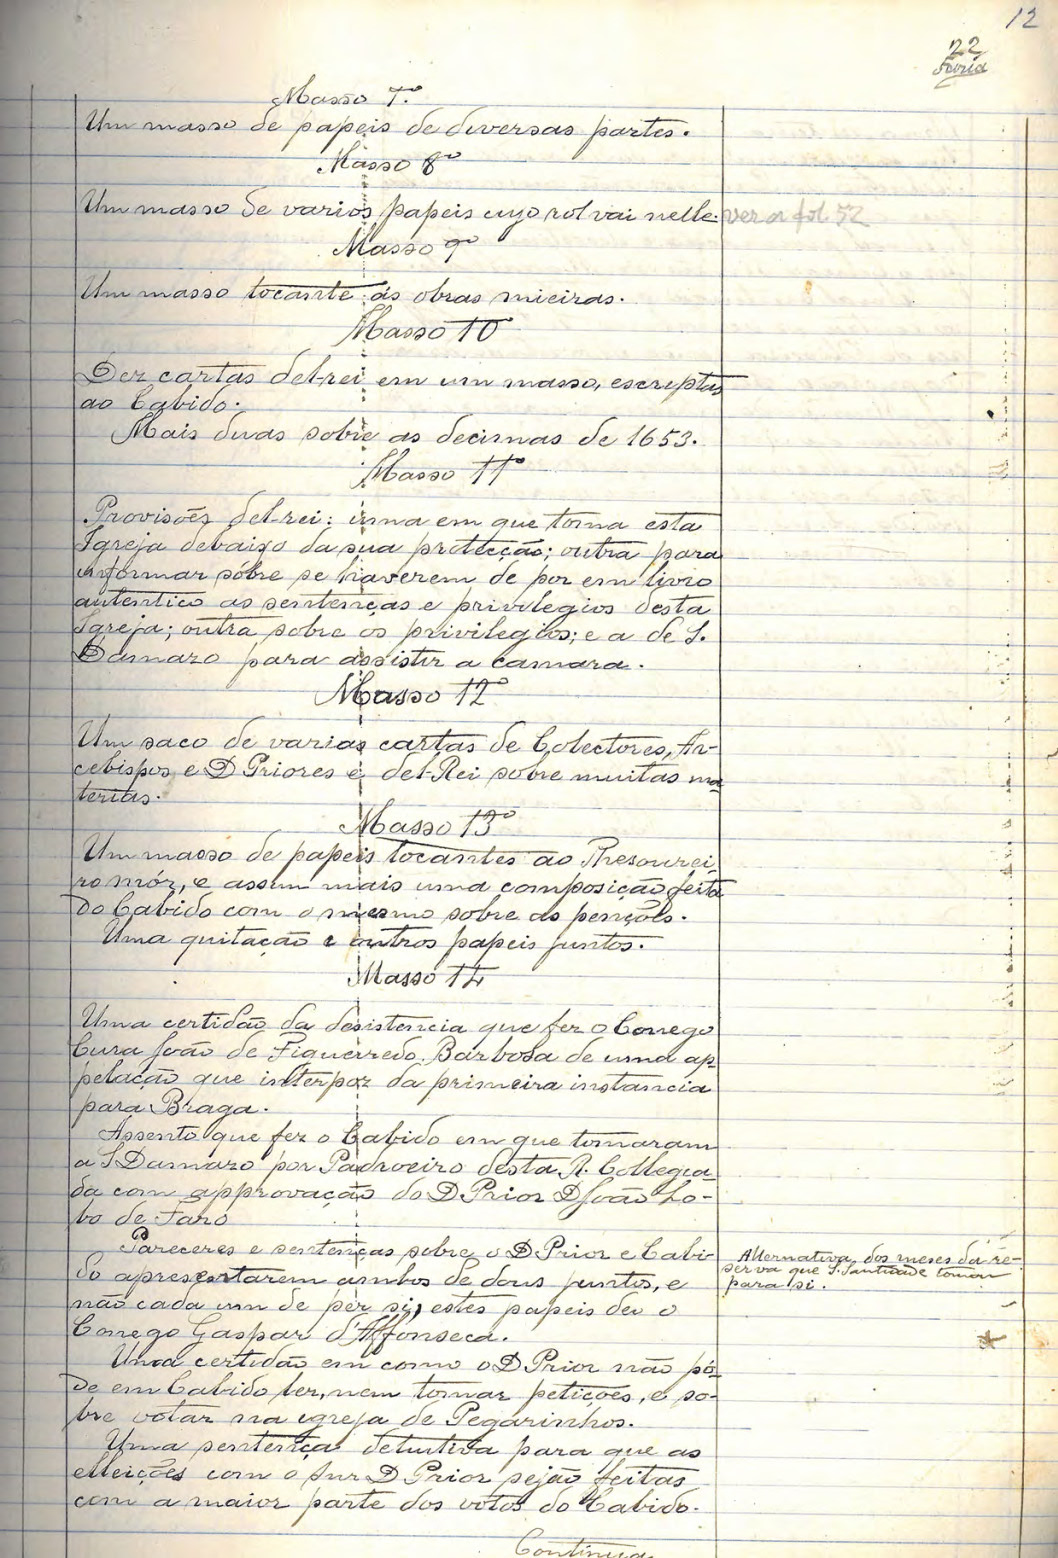 12
22
Masso 7.º
Um masso de papeis de diversas partes.
Masso 8º
Um masso de varios papeis cujo rol vai nelle. ver a fol. 52
Masso 9º
Um masso tocante ás obras mieiras.
Masso 10
Dez cartas del-rei em um masso, escriptas
ao Cabido.
Mais duas sobre as decimas de 1653.
Masso 11º
Provisões del-rei: uma em que toma esta
Igreja debaixo da sua protecção; outra para
informar sóbre se haverem de por em livro
autentico as sentenças e privilegios desta
Igreja; outra sobre os privilegios; e a de S.
Damazo para assistir a camara.
Masso 12º
Um saco de varias cartas de Colectores, Ar-
cebispos, e D Priores e del-Rei sobre muitas ma
terias.
Masso 13º
Um masso de papeis tocantes ao Thesourei
ro mór, e assim mais uma composição feita
do Cabido com o mesmo sobre as penções.
Uma quitação e outros papeis juntos.
Masso 14
Uma certidão da desistencia que fez o Conego
Cura João de Figueiredo Barbosa de uma ap
pelação que interpoz da primeira instancia
para Braga.
Assento que fez o Cabido em que tomaram
a S Damazo por Padroeiro desta R. Collegia
da com approvação do D Prior D João Lo-
bo de Faro
Pareceres e sentenças sobre o D Prior e Cabi-
do apresentarem ambos de dous juntos, e
não cada um de per si, estes papeis deu o
Conego Gaspar d'Affonseca.
Alternativa dos meses da re-
serva que S. Santidade tomou
para si.
Uma certidão em como o D Prior não pó
de em Cabido ler, nem tomar petições, e so-
bre votar na igreja de Pegarinhos.
Uma sentença para que as
elleições com o snr D Prior sejão feitas
com a maior parte dos votos do Cabido.
Continua